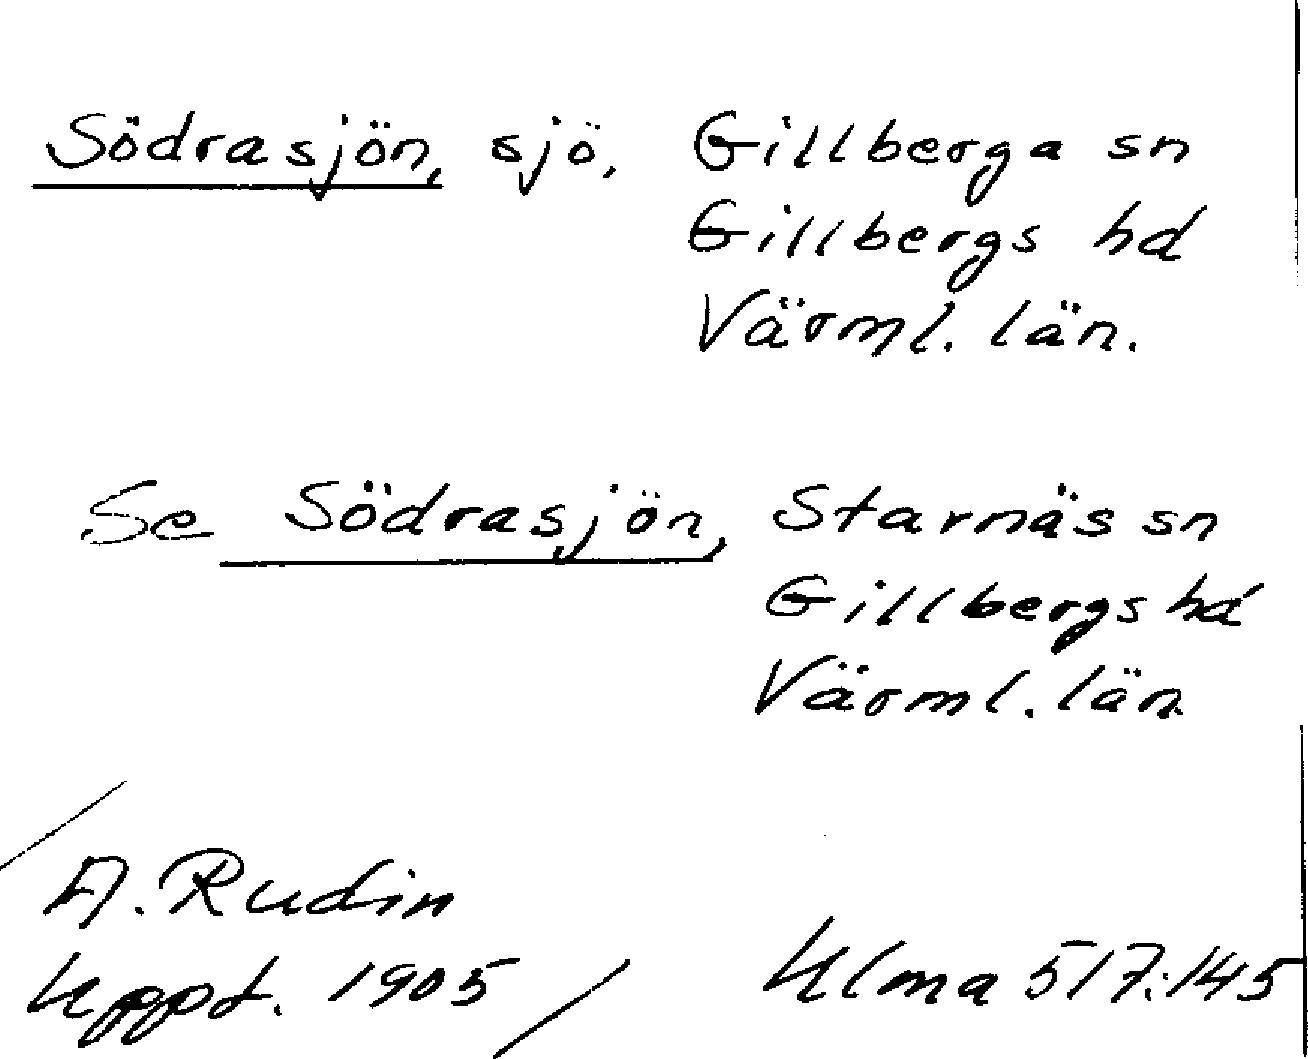 Södrasjön, sjö, Gillberga sn
Gillbergs hd
Värml. län.
Se Södrasjön, Starnäs sn
Gillbergs hd
Värml. län.
A. Rudin
Uppt. 1905
Ulma 517:145